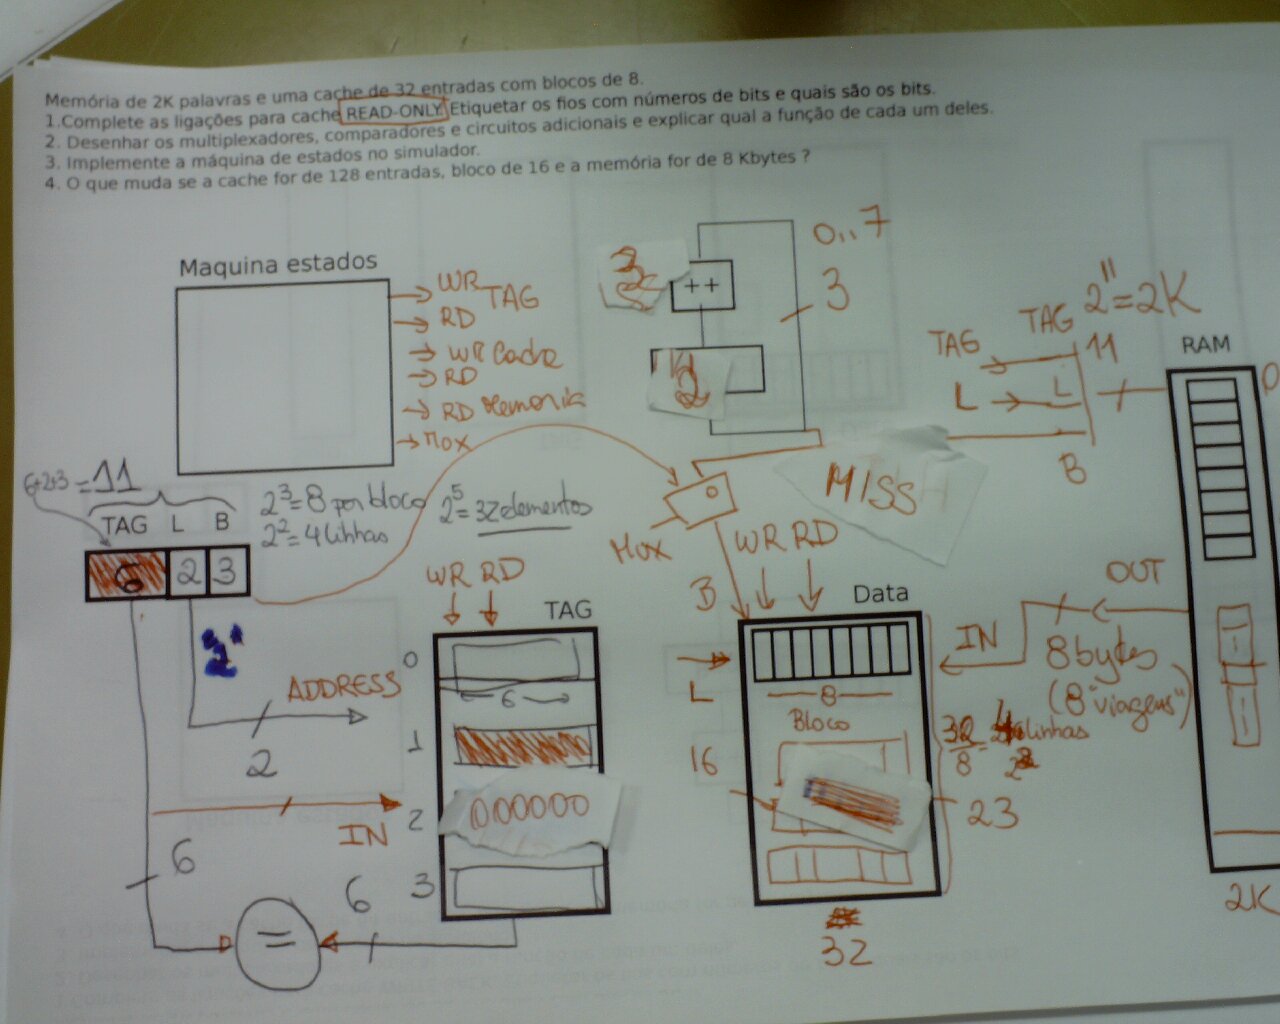 Memória de 2K palavras e uma cache de 32 entradas com blocos de 8.
1.Complete as ligações para cache READ-ONLY. Etiquetar os fios com números de bits e quais são os bits.
2. Desenhar os multiplexadores, comparadores e circuitos adicionais e explicar qual a função de cada um deles.
3. Implemente a máquina de estados no simulador.
4. O que muda se a cache for de 128 entradas, bloco de 16 e a memória for de 8 Kbytes ?
Maquina estados
WR TAG
RD
WR Cache
RD
RD Memoria
Mux
++
0..7
3
2
TAG 2^11=2K
TAG
11
L
L
B
RAM
0
6+2+3 = 11
TAG L B
6 2 3
2^3=8 por bloco
2^2=4 linhas
2^5=32 elementos
MISS
Mux
WR RD
B
Data
WR RD
TAG
2
ADDRESS
2
0
6
1
IN
2
000000
3
6
6
=
L
8
Bloco
16
23
32
IN
OUT
8 bytes
(8 "viagens")
32/8 = 4 linhas
2K